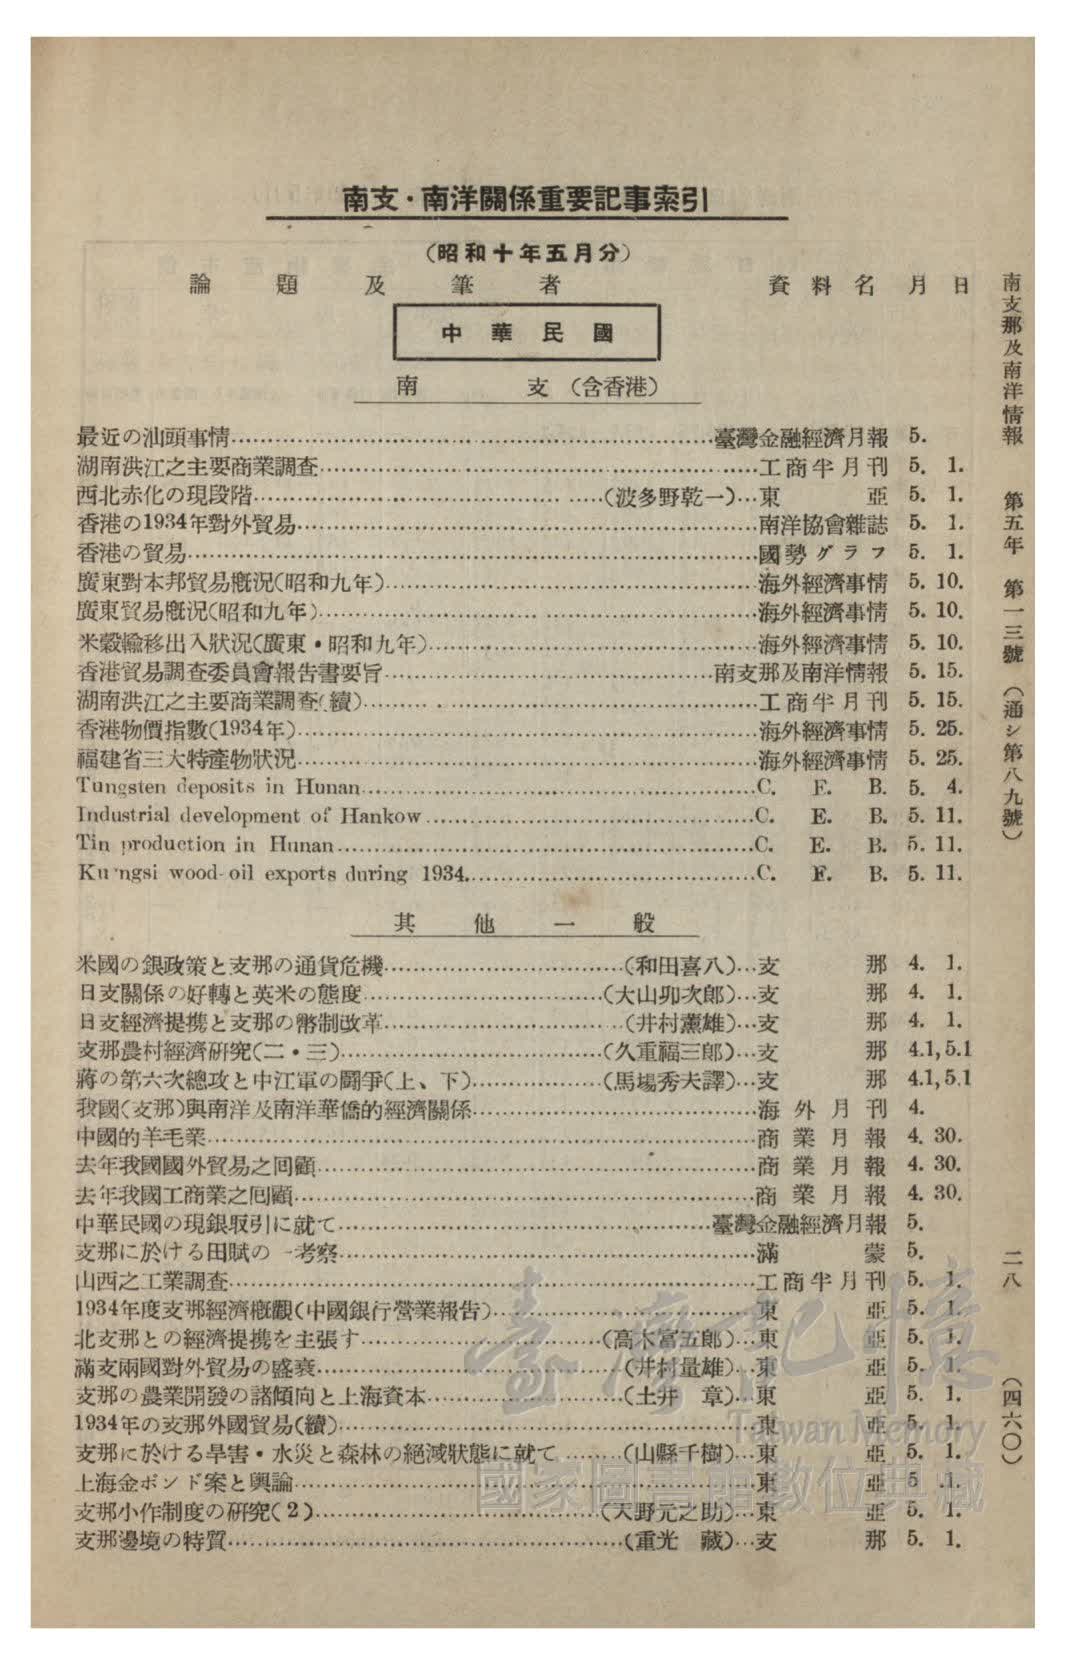 南支・南洋關係重要記事索引
(昭和十年五月分)
論題及筆者 資料名 月日
中華民國
南支(含香港)
最近の汕頭事情……臺灣金融經濟月報 5.
湖南洪江之主要商業調查……工商半月刊 5. 1.
西北赤化の現段階……(波多野乾一)…東亞 5. 1.
香港の1934年對外貿易……南洋協會雜誌 5. 1.
香港の貿易……國勢グラフ 5. 1.
廣東對本邦貿易概況(昭和九年)……海外經濟事情 5. 10.
廣東貿易概況(昭和九年)……海外經濟事情 5. 10.
米穀輸移出入狀況(廣東・昭和九年)……海外經濟事情 5. 10.
香港貿易調查委員會報告書要旨……南支那及南洋情報 5. 15.
湖南洪江之主要商業調查(續)……工商半月刊 5. 15.
香港物價指數(1934年)……海外經濟事情 5. 25.
福建省三大特產物狀況……海外經濟事情 5. 25.
Tungsten deposits in Hunan……C. E. B. 5. 4.
Industrial development of Hankow……C. E. B. 5. 11.
Tin production in Hunan……C. E. B. 5. 11.
Kuangsi wood-oil exports during 1934……C. E. B. 5. 11.
其他一般
米國の銀政策と支那の通貨危機……(和田喜八)…支那 4. 1.
日支關係の好轉と英米の態度……(大山卯次郎)…支那 4. 1.
日支經濟提携と支那の幣制改革……(井村薰雄)…支那 4. 1.
支那農村經濟研究(二・三)……(久重福三郎)…支那 4.1, 5.1
蔣の第六次總攻と中江軍の鬪爭(上、下)……(馬場秀夫譯)…支那 4.1, 5.1
我國(支那)與南洋及南洋華僑的經濟關係……海外月刊 4.
中國的羊毛業……商業月報 4. 30.
去年我國國外貿易之回顧……商業月報 4. 30.
去年我國工商業之回顧……商業月報 4. 30.
中華民國の現銀取引に就て……臺灣金融經濟月報 5.
支那に於ける田賦の一考察……滿蒙 5.
山西之工業調查……工商半月刊 5. 1.
1934年度支那經濟概觀(中國銀行營業報告)……東亞 5. 1.
北支那との經濟提携を主張す……(高木富五郎)…東亞 5. 1.
滿支兩國對外貿易の盛衰……(井村量雄)…東亞 5. 1.
支那の農業開發の諸傾向と上海資本……(土井 章)…東亞 5. 1.
1934年の支那外國貿易(續)……東亞 5. 1.
支那に於ける旱害・水災と森林の絕滅狀態に就て……(山縣千樹)…東亞 5. 1.
上海金ボンド案と輿論……東亞 5 .1.
支那小作制度の研究(2)……(天野元之助)…東亞 5. 1.
支那邊境の特質……(重光 藏)…支那 5. 1.
南支那及南洋情報 第五年 第一三號 (通シ第八九號) 二八 (四六〇)
臺灣記憶
Taiwan Memory
國家圖書館數位典藏